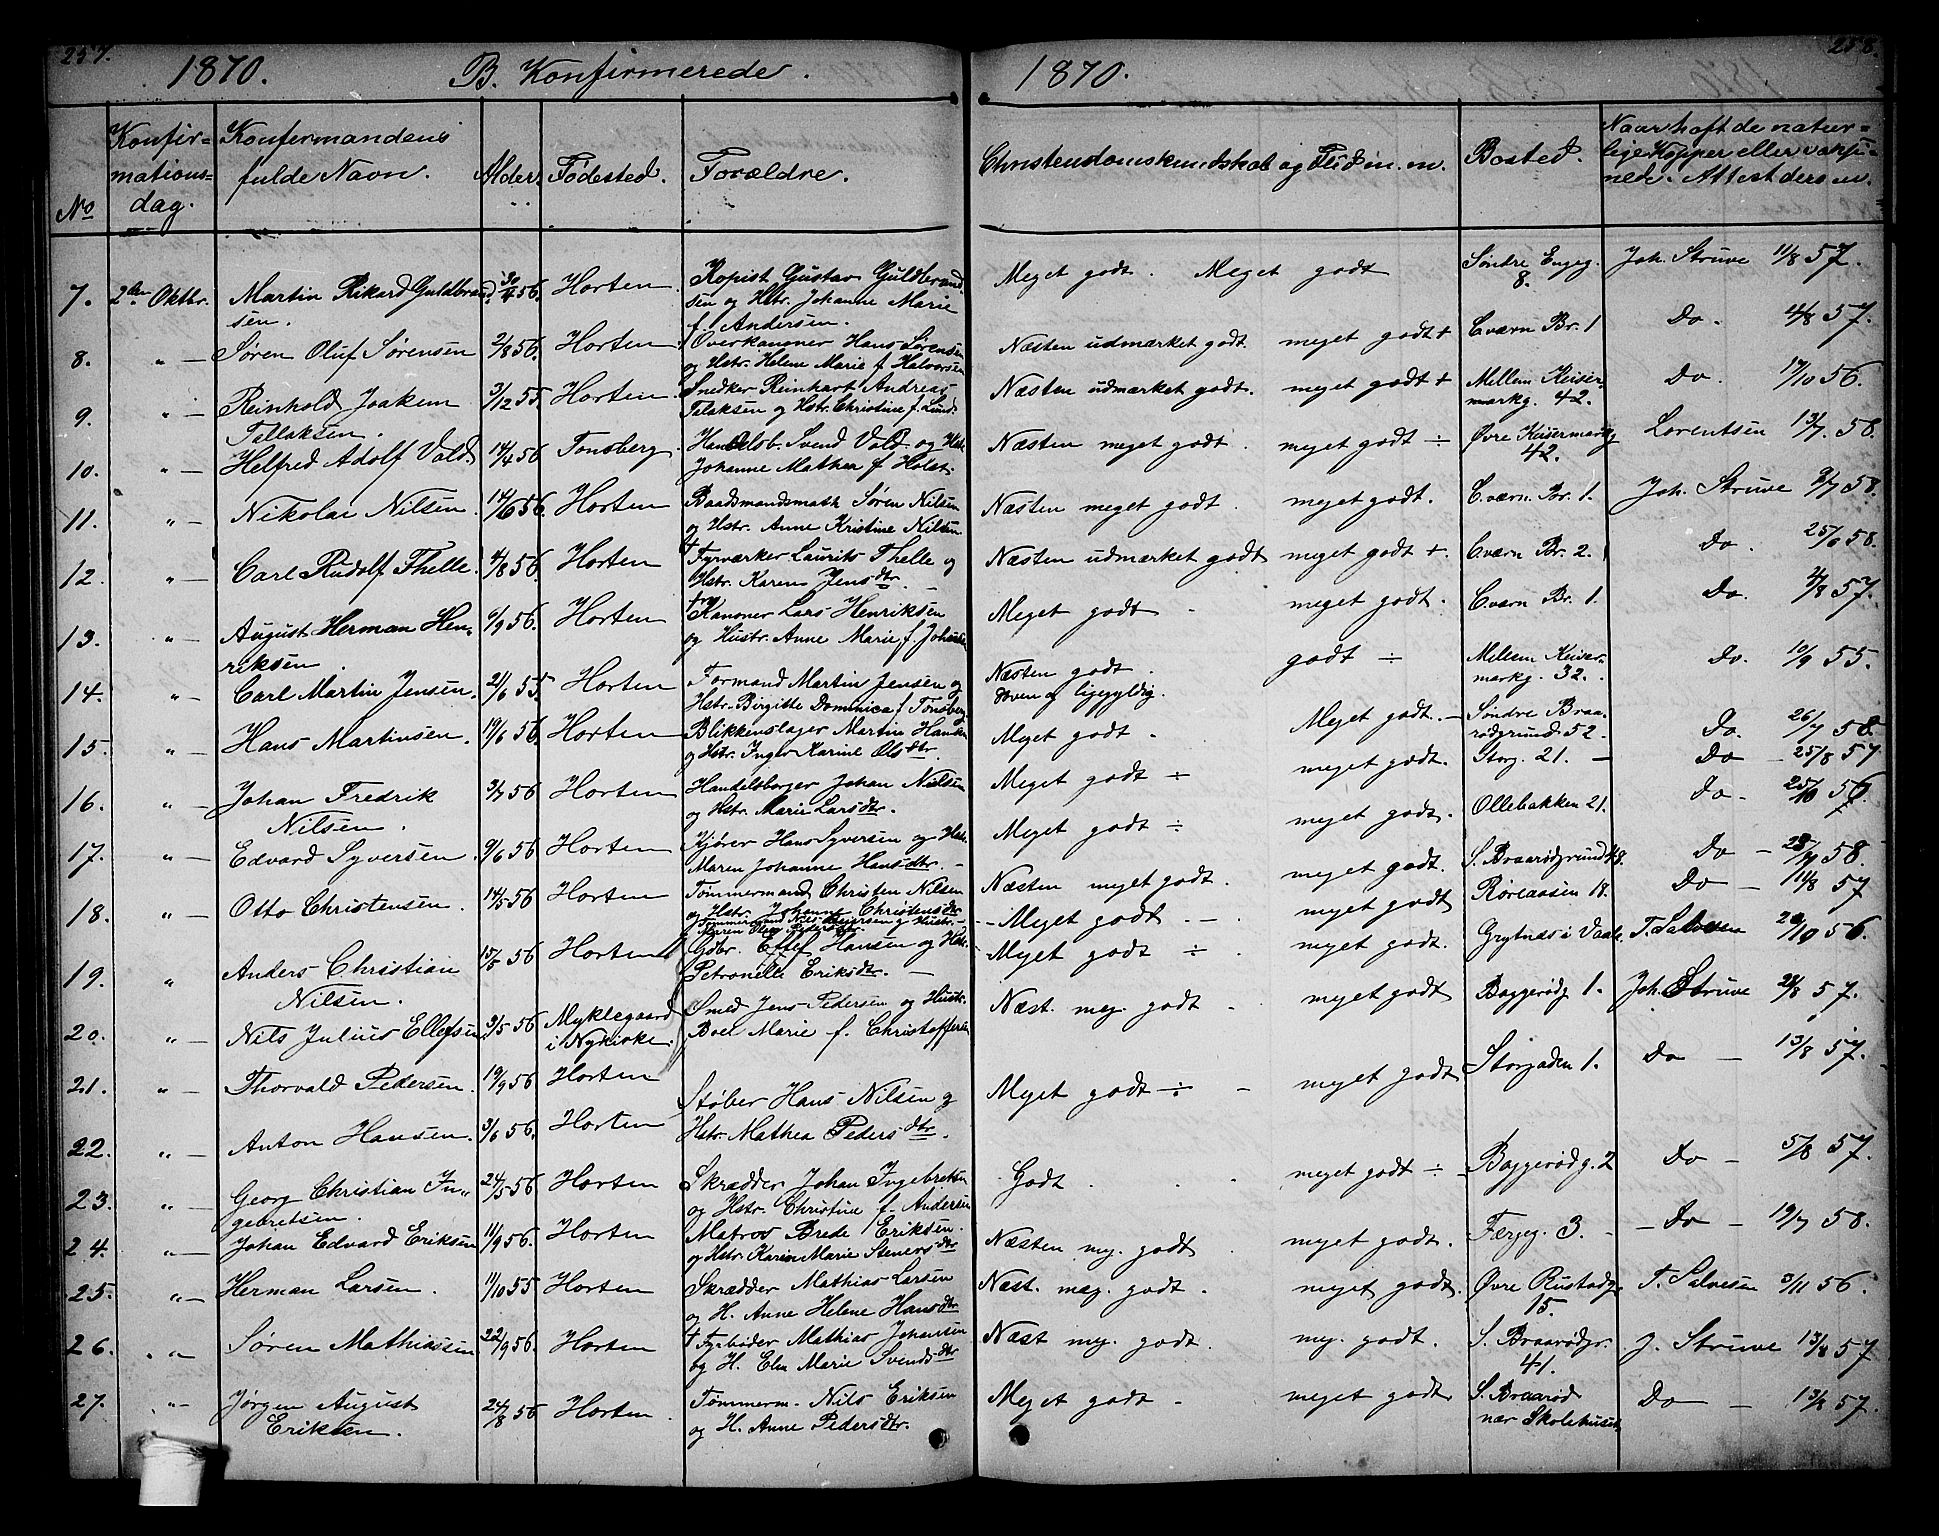 257.
1870. B. Konfirmerede.
1870.
258.
No
Konfir-
mations-
dag.
Konfermandens
fulde Navn.
Alder.
Fødested.
Forældre.
Christendomskundskab og Flid in. m.
Bosted.
Naar haft de natur-
lige Kopper eller vaksi-
nede. Attest ders m.
7. 2den Oktbr. Martin Rikard Guldbrand- 30/4 56. Horten. Kopist Gustav Guldbrand-
sen. sen og Hstr. Johanne Marie
f. Andersen.
Meget godt. Meget godt Søndre Engeg. Joh. Struve 11/8 57.
8.
8. " — Søren Oluf Sørensen 2/8 56. Horten Overkanoner Hans Sørensen
og Hstr. Helene Marie f. Halvorsen
Næsten udmærket godt. meget godt + C.værn Br. 1 Do. 4/8 57.
9. " — Reinhold Joakem 3/12 55. Horten. Snedker Reinhart Andreas
Tellaksen. Telaksen og Hstr. Christine f. Lund.
Næsten udmærket godt. meget godt + Mellem Keiser- Do. 17/10 56.
markg. 42.
10. " — Helfred Adolf Vold 14/4 56 Tonsberg. Handelsb. Svend Vold og Hstr.
Johanne Mathea f. Holst.
Næsten meget godt. meget godt ÷ Øvre Keisermarkg Lorentsen 13/7 58.
42.
11. " — Nikolai Nilsen. 14/6 56. Horten Baadsmandsmath Søren Nilsen
og Hstr. Anne Kristine Nilsen.
Næsten meget godt. meget godt. C.værn Br. 1. Joh. Struve 2/7 58.
12. " — Carl Rudolf Thelle. 4/8 56. Horten Fyrværker Laurits Thelle og
Hstr. Karen Jensdtr.
Næsten udmærket godt meget godt +. C.værn Br. 2. Do. 25/6 58.
13. " — August Herman Hen- 6/9 56. Horten Kanoner Lars Henriksen
riksen. og Hustr. Anne Marie f.
Meget godt meget godt. C.værn Br. 1. Do. 4/8 57.
14. " — Carl Martin Jensen. 21/6 55. Horten Formand Martin Jensen og
Hstr. Birgitte Dominica f. Tønsberg
Næsten godt. godt ÷ Mellem Keiser- Do. 10/9 55.
Doven og ligegyldig. markg. 32.
15. " — Hans Martinsen. 19/6 56. Horten Blikkenslager Martin Hansen
og Hstr. Inger Karine Olsdtr.
Meget godt. Meget godt. — Søndre Braa- Do. 26/7 58.
rødgrund 52.
16. " — Johan Fredrik 3/7 56 Horten Handelsborger Johan Nielsen
Nilsen. og Hstr. Marie Larsdtr.
Meget godt ÷ meget godt. Storg. 21. — Do — 25/8 57
17. " — Edvard Syversen. 9/6 56 Horten Kjører Hans Syversen og Hstr.
Maren Johanne Hansdtr. —
Meget godt ÷ meget godt. Ollebakken 21. Do — 25/10 56.
18. " — Otto Christensen. 14/5 56 Horten Tømmermand Christen Nilsen
og Hstr. Johanne Christensdtr
Næsten meget godt. meget godt. S. Braarødgrund 48. Do — 28/7 58.
19. " Anders Christian 15/5 56 Horten
Nilsen.
Meget godt. — meget godt Røreaasen 18. Do — 11/8 57
20. " — Nils Julius Ellefsen 3/5 56 Myklegaard Gdbr. Ellef Hansen og Hstr.
i Nykirke. Petronelle Eriksdtr. —
Meget godt ÷ meget godt. Grytnes i Vaale. T. Salvesen 29/10 56.
21. " — Thorvald Pedersen. 19/9 56 Horten Smed Jens Pedersen og Hustr.
Boel Marie f. Christoffersen
Næst. meg. godt - meget godt Baggerødg 1. Joh. Struve 28/8 57.
22. " — Anton Hansen. 3/6 56. Horten Støber Hans Nilsen og
Hstr. Mathea Pedersdtr.
Meget godt ÷ - meget godt Storgaden 1. Do — 13/8 57.
23. " — Georg Christian In- 24/5 56 Horten Skrædder Johan Ingebretsen
gebretsen. og Hstr. Christine f. Andersen
Godt. meget godt ÷ Baggerødg. 2 Do — 5/8 57.
24. " — Johan Edvard Eriksen 11/9 56. Horten Matros Brede Eriksen.
og Hstr. Karen Marie Stenersdtr
Næsten meg. godt meget godt. Færgeg. 3. — Do — 19/7 58.
25. " — Herman Larsen. 11/10 55 Horten Skrædder Mathias Larsen
og H. Anne Helene Hansdtr
Næst. meg. godt. meget godt. Øvre Rustadg. T. Salvesen 3/11 56.
15.
26. " Søren Mathiassen 22/9 56. Horten Fyrbøder Mathias Johansen
og H. Elen Marie Svendsdtr
Næst meg. godt meg. godt. S. Braarødgr. J. Struve 13/8 57
41.
27. " Jørgen August 24/8 56 Horten. Tømmerm. Nils Eriksen
Eriksen. og H. Anne Pedersdtr.
Meget godt. meget godt. S. Braarød Do — 13/8 57.
nær Skolehuset.